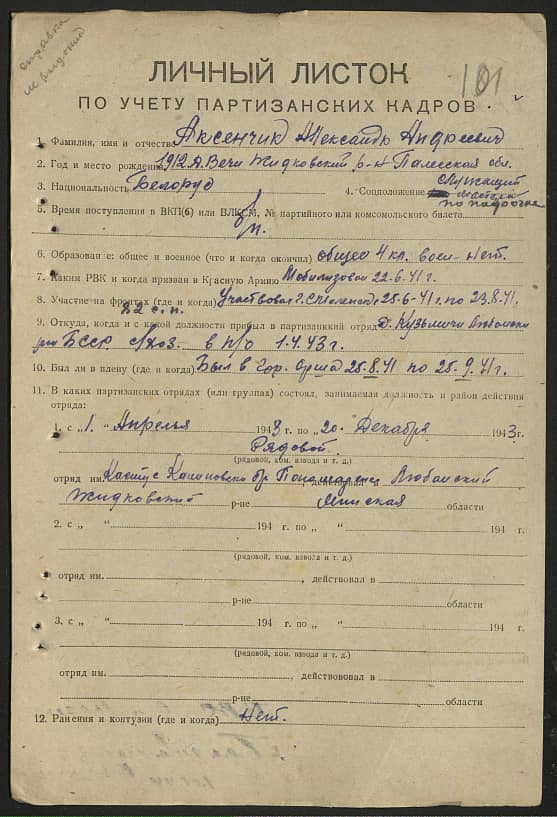 справка
101
ЛИЧНЫЙ ЛИСТОК
ПО УЧЕТУ ПАРТИЗАНСКИХ КАДРОВ
1. Фамилия, имя и отчество Аксенчик Александр Андреевич
2. Год и место рождения 1912 д. Вечи Жидковский р-н Палесская обл.
3. Национальность Белорус 4. Соцположение служащий
5. Время поступления в ВКП(б) или ВЛКСМ, № партийного или комсомольского билета
б/п.
6. Образование: общее и военное (что и когда окончил) общее 4 кл. воен- нет.
7. Каким РВК и когда призван в Красную Армию Мобилизован 22.6.41г.
8. Участие на фронтах (где и когда) Участвовал г. Смоленск 25-6-41г. по 23.8.41.
22 с.п.
9. Откуда, когда и с какой должности прибыл в партизанский отряд д. Кузьмичи Любански
р-н БССР с/хоз. в п/о 1.4.43г.
10. Был ли в плену (где и когда) Был в гор. Орша 25-8-41 по 25.9.41г.
11. В каких партизанских отрядах (или группах) состоял, занимаемая должность и район действия
отряда:
1. с „1.“ Апрелья 1943 г. по „20.“ Декабря 1943 г.
Рядовой.
(рядовой, ком. взвода и т. д.)
отряд им. Кастус Калиновски бр Пономаренко, действовал Любанский
Жидковский р-не Минская области
2. с „ “ 194 г. по „ “ 194 г.
(рядовой, ком. взвода и т. д.)
отряд им. , действовал в
р-не области
3. с „ “ 194 г. по „ “ 194 г.
(рядовой, ком. взвода и т. д.)
отряд им. , действовал в
р-не области
12. Ранения и контузии (где и когда) Нет.